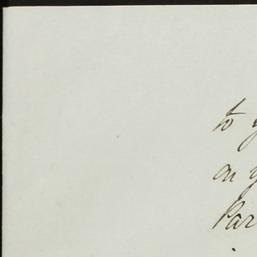 to y
on y
Par